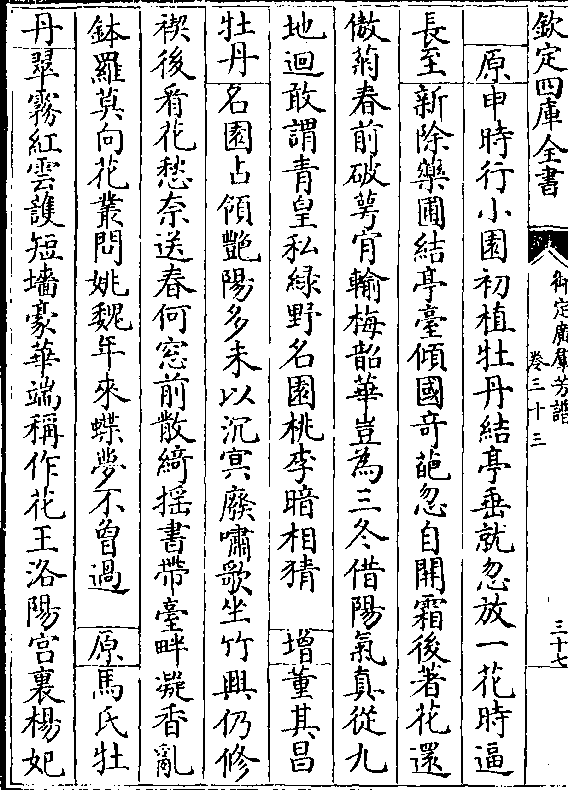 欽定四庫全書
御定廣羣芳譜
卷三十三
三十七
原申時行小園初植牡丹結亭垂就忽放一花時逼
長至新除藥圃結亭臺傾國奇葩忽自開霜後著花還
傲菊春前破萼肯輸梅韶華豈為三冬借陽氣真從九
地迴敢謂青皇私綠野名園桃李暗相猜增董其昌
牡丹名園占領艷陽多未以沉冥廢嘯歌坐竹興仍修
禊後看花愁奈送春何窓前散綺摇書帶臺畔凝香亂
鉢羅莫向花叢問姚魏年來蝶夢不曾過原馬氏牡
丹翠霧紅雲護短墻豪華端稱作花王洛陽宫裏楊妃